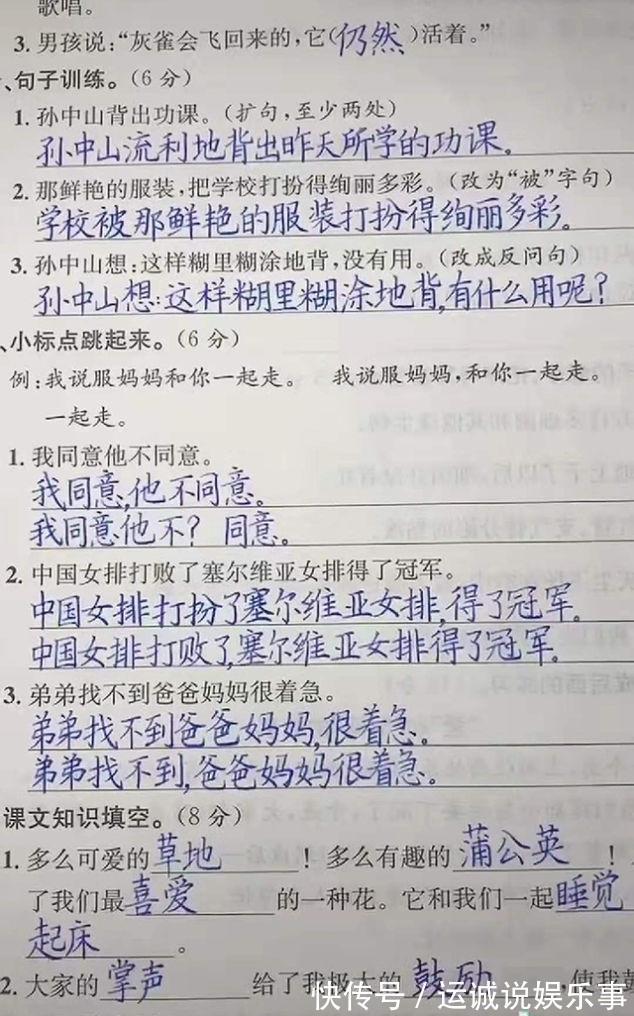 歌唱。
3. 男孩说：“灰雀会飞回来的，它（仍然）活着。”
、句子训练。（6 分）
1. 孙中山背出功课。（扩句，至少两处）
孙中山流利地背出昨天所学的功课。
2. 那鲜艳的服装，把学校打扮得绚丽多彩。（改为“被”字句）
学校被那鲜艳的服装打扮得绚丽多彩。
3. 孙中山想：这样糊里糊涂地背，没有用。（改成反问句）
孙中山想：这样糊里糊涂地背，有什么用呢？
、小标点跳起来。（6 分）
例：我说服妈妈和你一起走。 我说服妈妈，和你一起走。
一起走。
1. 我同意他不同意。
我同意，他不同意。
我同意他不？同意。
2. 中国女排打败了塞尔维亚女排得了冠军。
中国女排打扮了塞尔维亚女排，得了冠军。
中国女排打败了，塞尔维亚女排得了冠军。
3. 弟弟找不到爸爸妈妈很着急。
弟弟找不到爸爸妈妈，很着急。
弟弟找不到，爸爸妈妈很着急。
课文知识填空。（8 分）
1. 多么可爱的草地！多么有趣的蒲公英！
了我们最喜爱的一种花。它和我们一起睡觉
起床。
2. 大家的掌声给了我极大的鼓励，使我
快传号／运诚说娱乐事